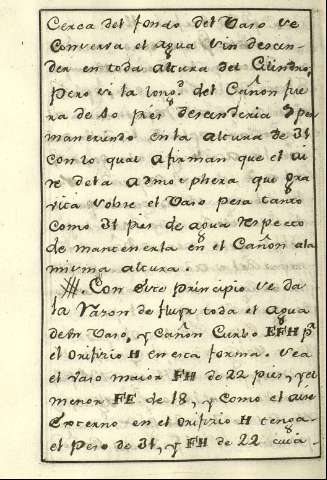 Cerca del fondo del Vaso se
conserva el agua sin descen-
der en toda altura del Cilindro;
pero si la long.d del Cañon fue
ra de 40 pies descenderia y per
maneciendo en la altura de 31
con lo qual afirman que el ai
re de la admosphera que gra
vita sobre el Vaso pesa tanto
como 31 pies de agua respecto
de mantenerla en el Cañon a la
misma altura.
Con este principio se da
la razon de fluir toda el agua
de un Vaso, y Cañon Curbo EFH p.r
el Orifizio H en esta forma. Sea
el Vaso maior FH de 22 pies, y el
menor FE de 18, y como el aire
Externo en el Orifizio H tenga
el peso de 31, y FH de 22 cuia-